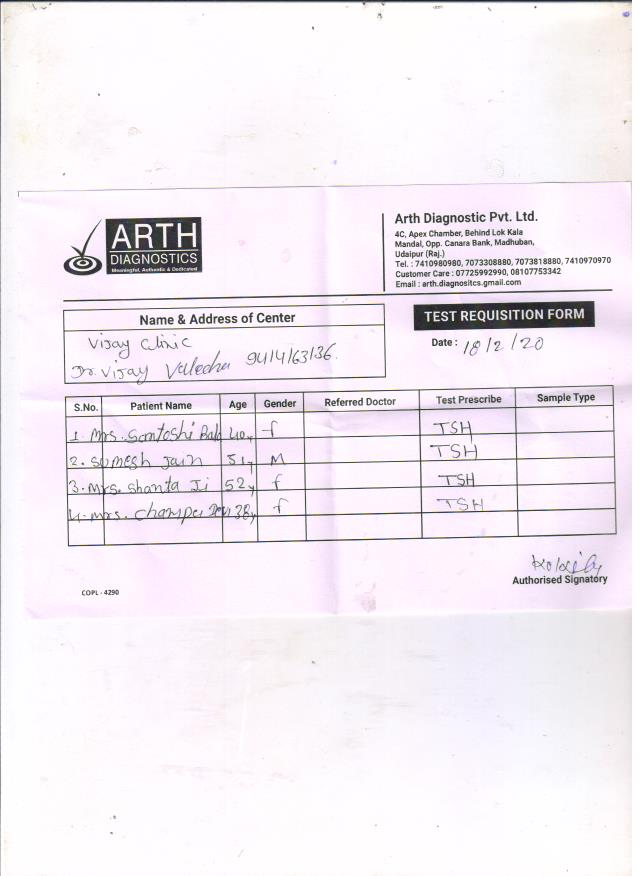 ARTH
DIAGNOSTICS
Meaningful, Authentic & Dedicated
Arth Diagnostic Pvt. Ltd.
4C, Apex Chamber, Behind Lok Kala
Mandal, Opp. Canara Bank, Madhuban,
Udaipur (Raj.)
Tel. : 7410980980, 7073308880, 7073818880, 7410970970
Customer Care : 07725992990, 08107753342
Email : arth.diagnositcs.gmail.com
Name & Address of Center
Vijay Clinic
Dr. Vijay Valecha 9414163136.
TEST REQUISITION FORM
Date : 18/2/20
S.No. Patient Name Age Gender Referred Doctor Test Prescribe Sample Type
1. Mrs. Santoshi 40y f TSH
2. Sumesh Jain 51y M TSH
3. Mrs. Shanta Ji 52y f TSH
4. Mrs. Champa Devi 38y f TSH
Authorised Signatory
COPL - 4290